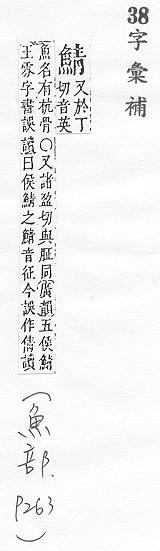 38字彙補
鯖又於丁切音英
魚名有枕骨〇又諸盈切與𦙫同廣韻五侯鯖
王氏字書誤讀曰侯鯖之鯖音征今誤作倩讀
(魚部.P263)